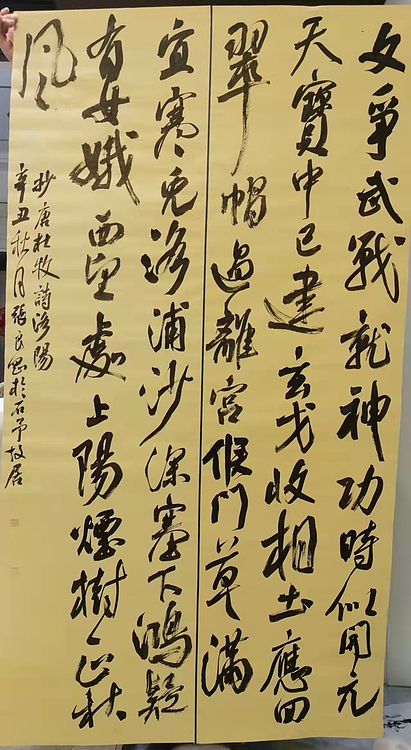 文爭武戰就神功時似開元
天寶中已建玄戈收相土應回
翠帽過離宮候门草滿
宜寒兔洛浦沙深塞下鴻疑
有女娥西望處上陽煙樹正秋
風
抄唐杜牧詩洛陽
辛丑秋月張民於石故居